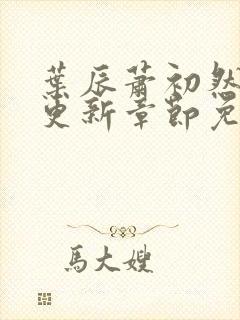 葉辰蕭初然
更新章節免
馬大嫂